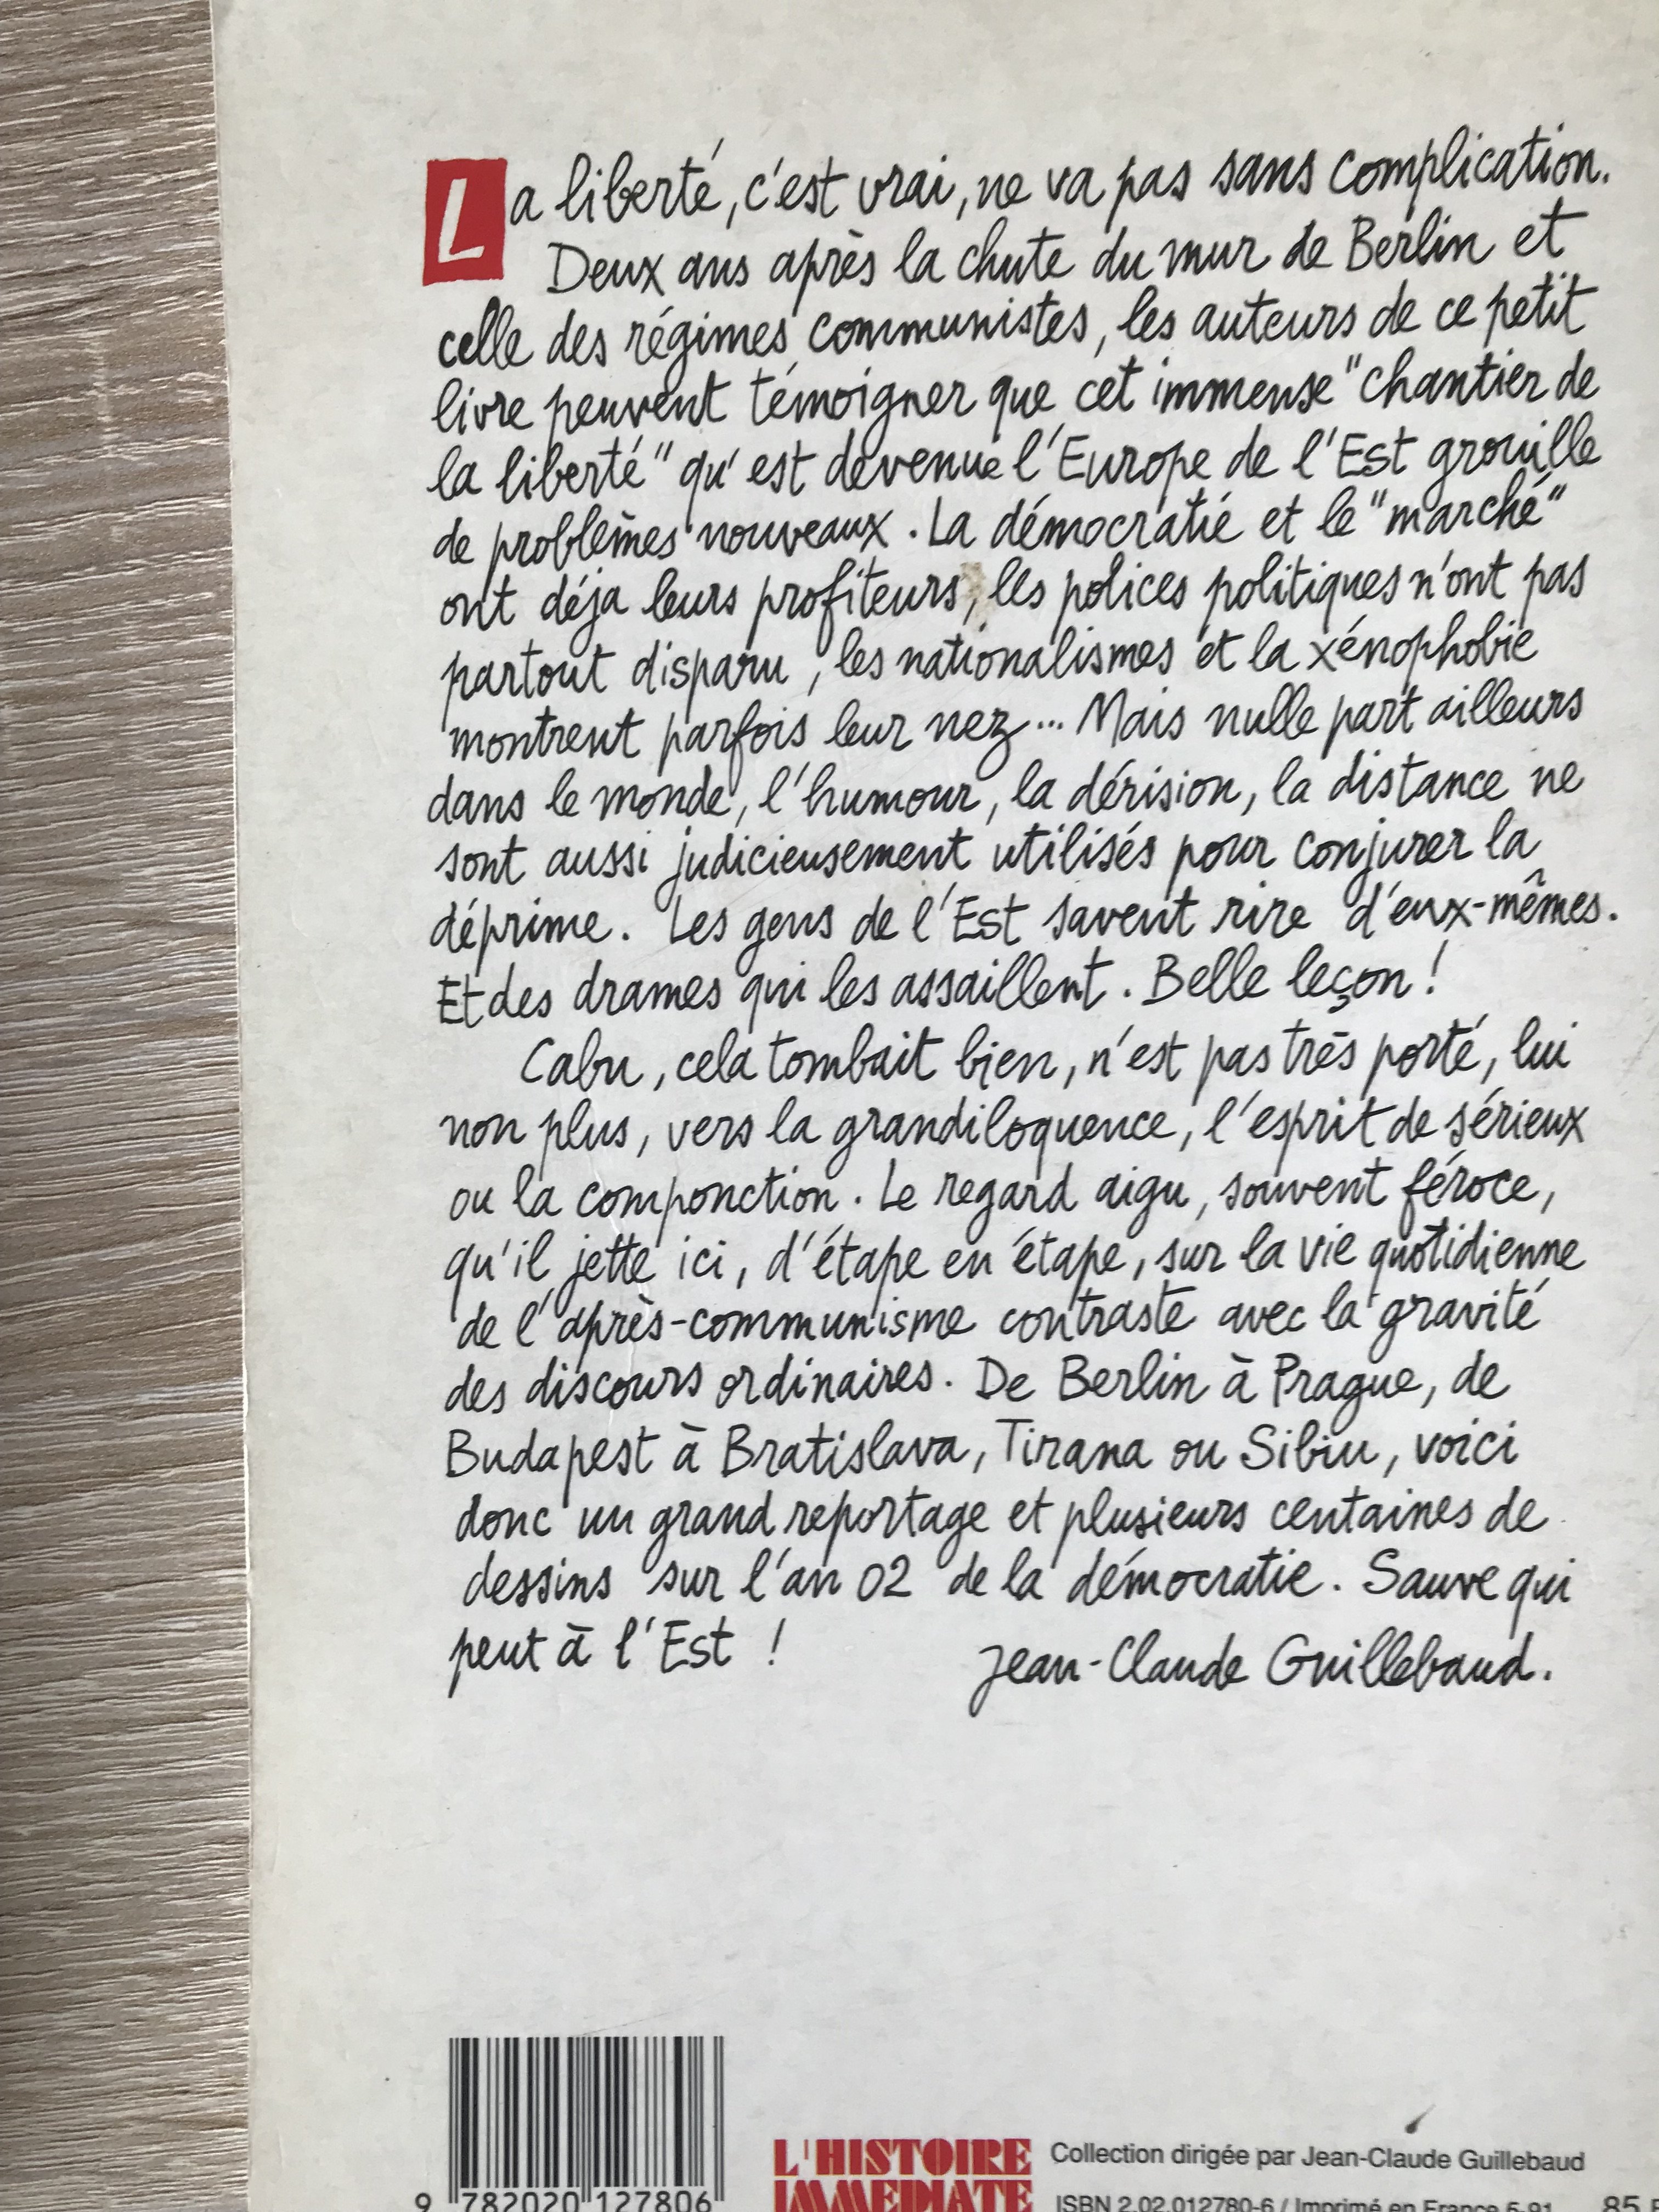 La liberté, c'est vrai, ne va pas sans complication.
Deux ans après la chute du mur de Berlin et
celle des régimes communistes, les auteurs de ce petit
livre peuvent témoigner que cet immense "chantier de
la liberté" qu'est devenue l'Europe de l'Est grouille
de problèmes nouveaux. La démocratie et le "marché"
ont déja leurs profiteurs, les polices politiques n'ont pas
partout disparu, les nationalismes et la xénophobie
montrent parfois leur nez... Mais nulle part ailleurs
dans le monde, l'humour, la dérision, la distance ne
sont aussi judicieusement utilisés pour conjurer la
déprime. Les gens de l'Est savent rire d'eux-mêmes.
Et des drames qui les assaillent. Belle leçon !
Cabu, cela tombait bien, n'est pas très porté, lui
non plus, vers la grandiloquence, l'esprit de sérieux
ou la componction. Le regard aigu, souvent féroce,
qu'il jette ici, d'étape en étape, sur la vie quotidienne
de l'après-communisme contraste avec la gravité
des discours ordinaires. De Berlin à Prague, de
Budapest à Bratislava, Tirana ou Sibiu, voici
donc un grand reportage et plusieurs centaines de
dessins sur l'an 02 de la démocratie. Sauve qui
peut à l'Est !
Jean-Claude Guillebaud.
9 782020 127806
L'HISTOIRE
IMMEDIATE
Collection dirigée par Jean-Claude Guillebaud
ISBN 2.02.012780-6 / Imprimé en France 5-91
85